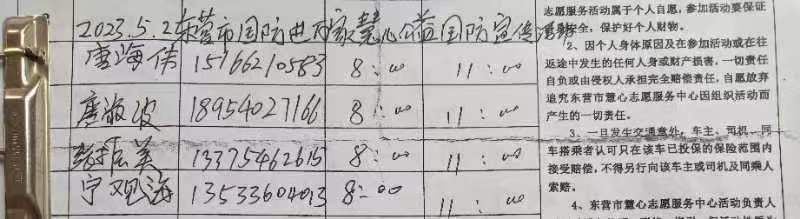 2023.5.2东营市国防进万家慧心公益国防宣传活动
唐海伟 15166210583 8:00 11:00
唐淑波 18954027166 8:00 11:00
美 13375462615 8:00 11:00
宁观海 13533604013 8:00 11:00
志愿服务活动属于个人自愿，参加活动要保证
安全，保护好个人财物。
2、因个人身体原因及在参加活动或在往
返途中发生的任何人身或财产损害，一切责任
自负或由侵权人承担完全赔偿责任，自愿放弃
追究东营市慧心志愿服务中心因组织活动而
产生的一切责任。
3、一旦发生交通意外，车主、司机、同
车搭乘者认可只在该车已投保的保险范围内
接受赔偿，不得另行向该车主或司机及同乘人
索赔。
4、东营市慧心志愿服务中心活动负责人